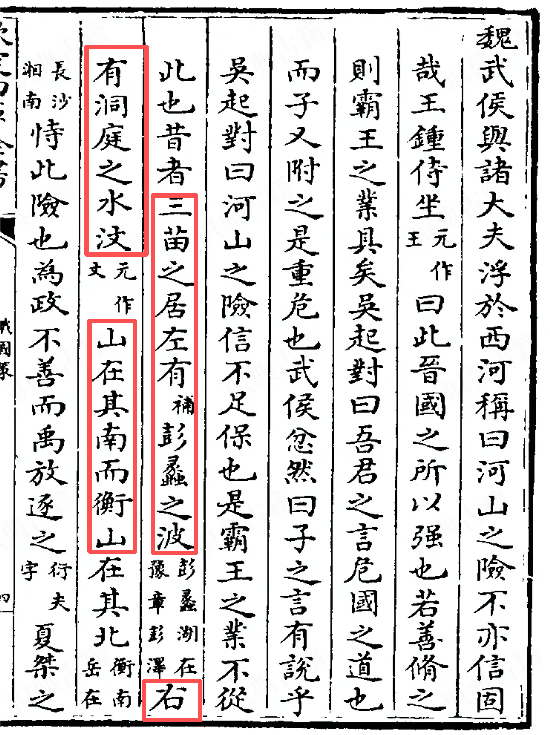 魏武侯與諸大夫浮於西河稱曰河山之險不亦信固
哉王鍾侍坐元作王曰此晉國之所以强也若善脩之
則霸王之業具矣吳起對曰吾君之言危國之道也
而子又附之是重危也武侯忿然曰子之言有說乎
吳起對曰河山之險信不足保也是霸王之業不從
此也昔者三苗之居左有補彭蠡之波彭蠡湖在豫章彭澤右
有洞庭之水汶元作文山在其南而衡山在其北衡南岳在
長沙湘南恃此險也為政不善而禹放逐之衍夫字夏桀之
戰國策